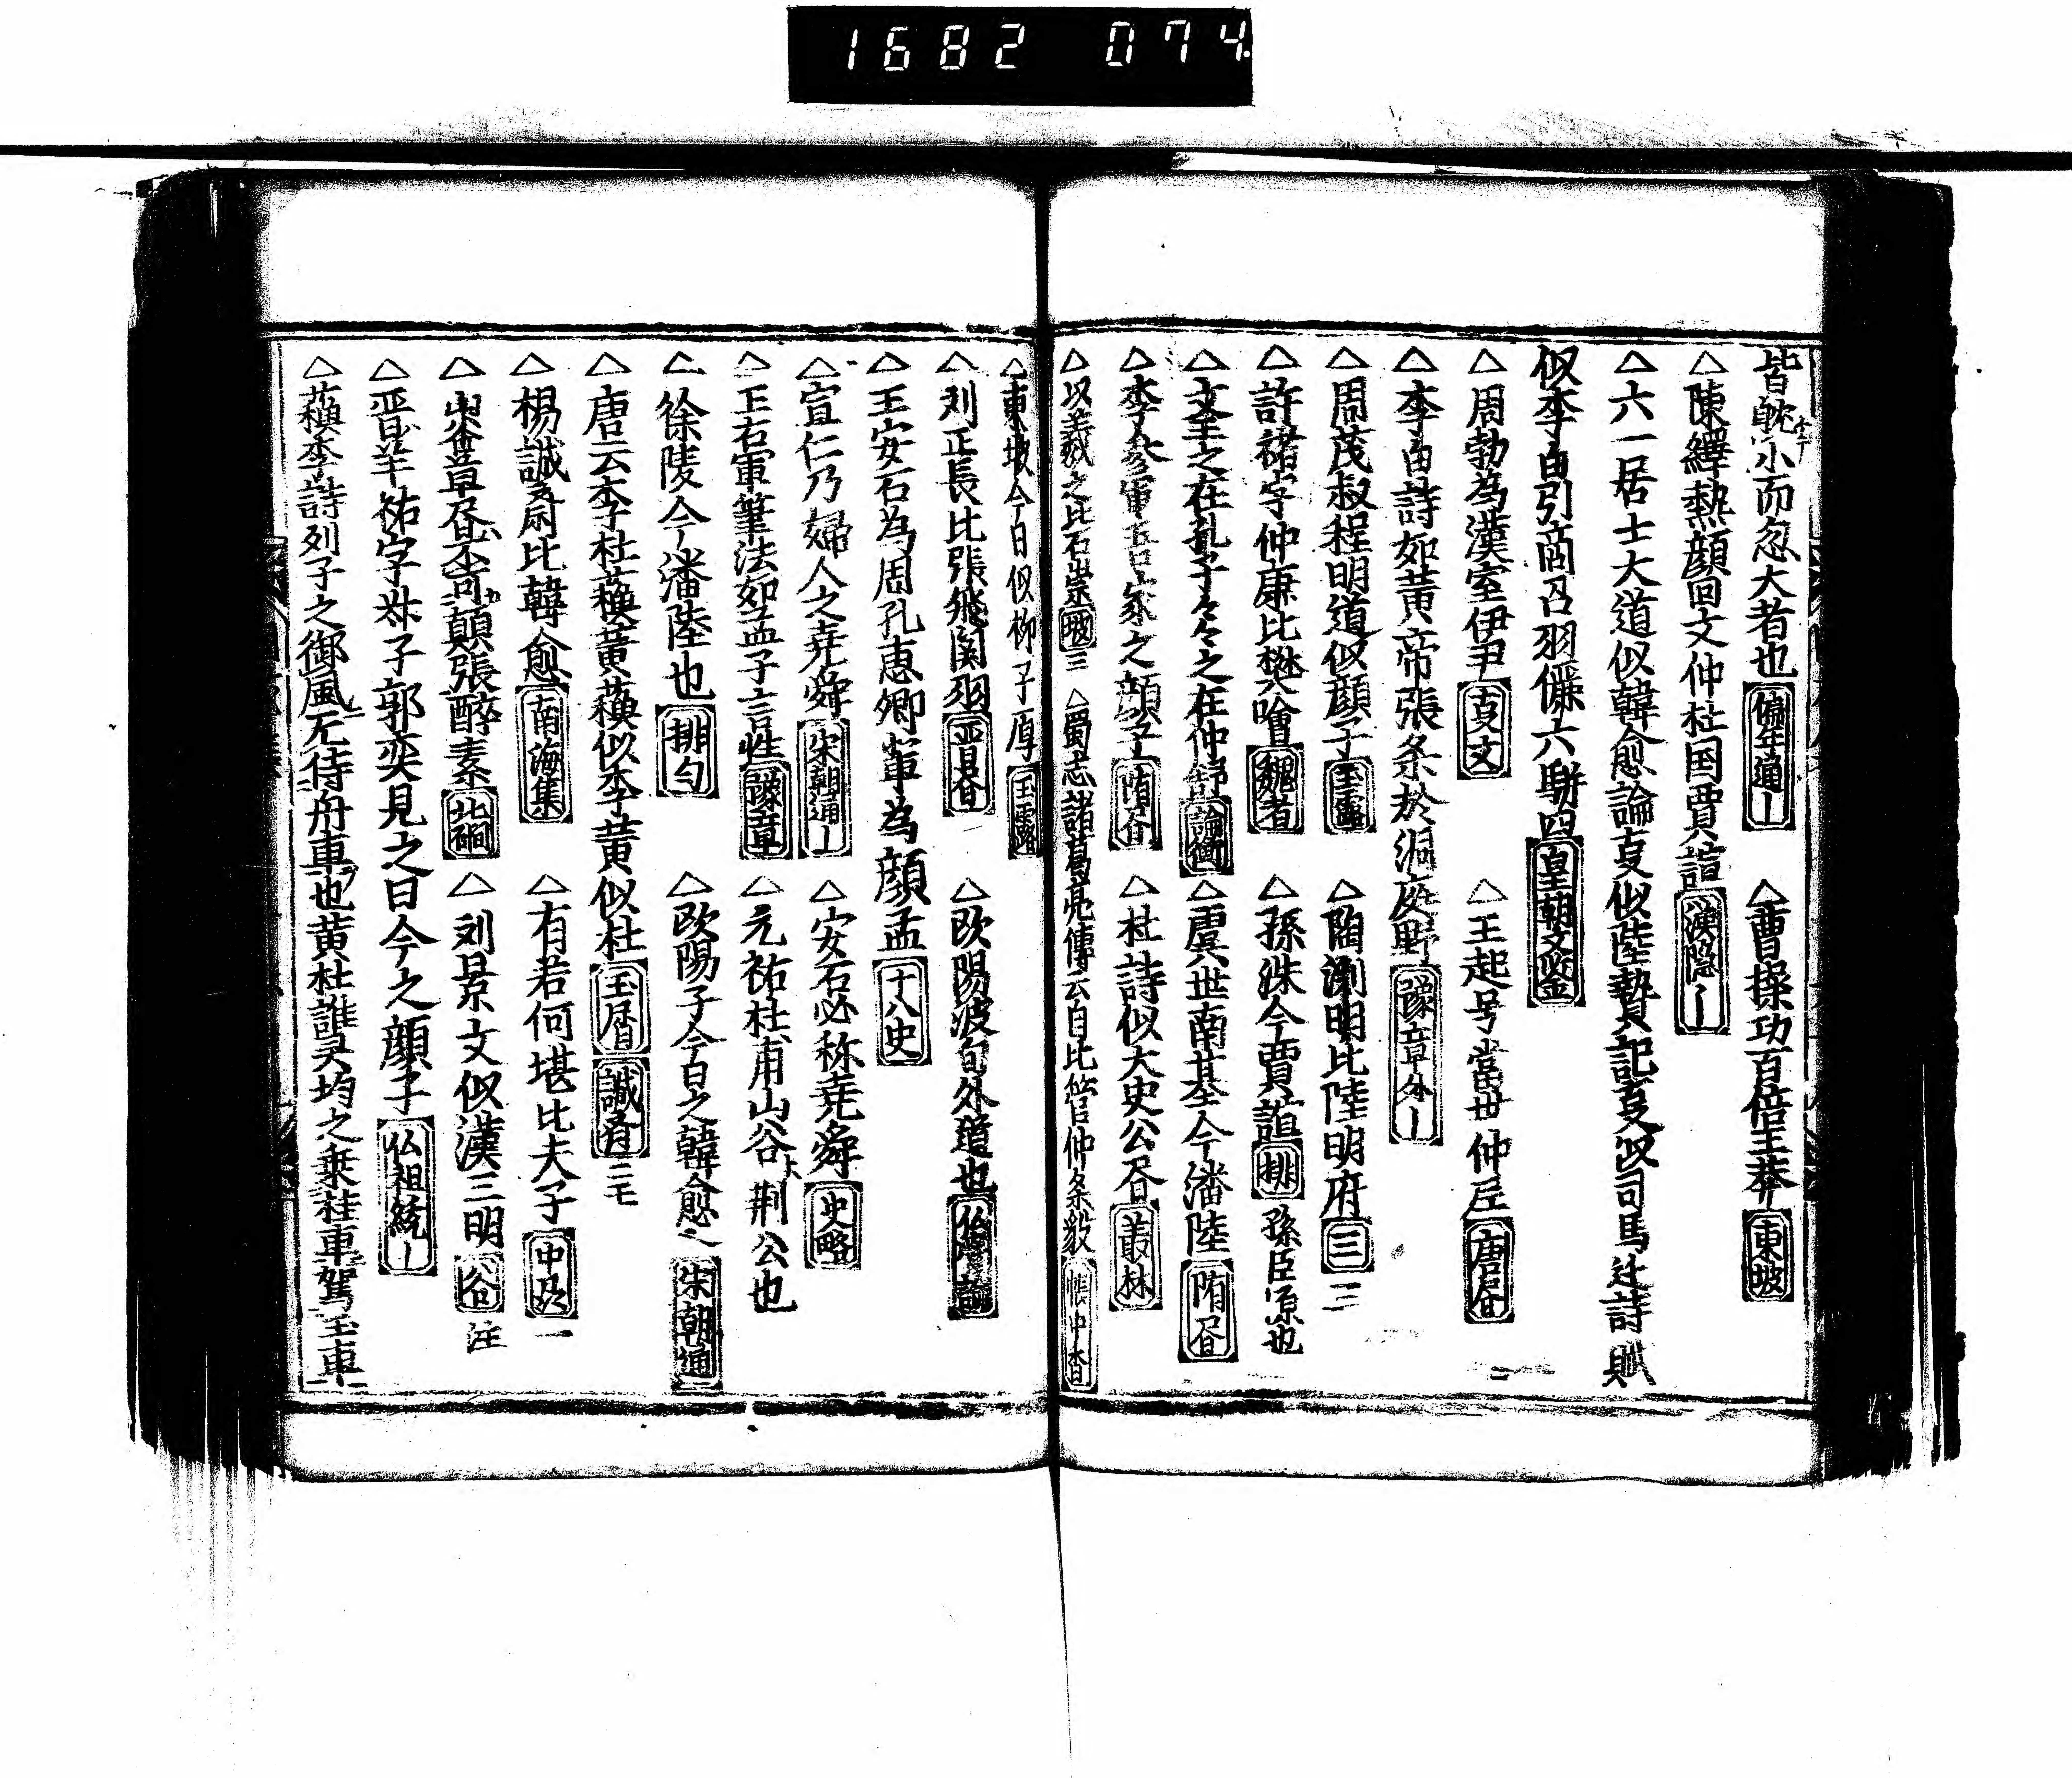 1682 074.
皆眈小而忽大者也 編年通｜ △曹操功百倍王莽 東坡
△陳繹熱顔回文仲杜国賈誼 漢隠｜
△六一居士大道似韓愈論事似陸贄記事似司馬迁詩賦
似李白引商召羽儷六駢四 皇朝文鑒
△周勃為漢室伊尹 事文 △王起号當世仲尼 唐
△李白詩如黄帝張条於洞庭野 豫章外｜
△周茂叔程明道似顔子 玉露 △陶渕明比陸明府 三 二
△許褚字仲康比樊噲 魏 △孫洙今賈誼 排 孫臣源也
△文王之在孔子々々之在仲舒 論衡 △虞世南基今潘陸 隋
△李参軍吾家之顔子 隋 △杜詩似大史公 叢林
△以義之比石崇 坡 三 △蜀志諸葛亮傳云自比管仲条毅 帳中香
△東坡今日似柳子厚 玉露
△刘正長比張飛関羽 晋 △欧陽波旬外道也
△王安石為周孔恵卿輩為顔孟 十八史
△宣仁乃婦人之尭舜 宋朝通｜ △安石必称尭舜 史略
△王右軍筆法如孟子言性 豫章 △元祐杜甫山谷荆公也
△徐陵今潘陸也 排勻 △欧陽子今日之韓愈也 宋朝通
△唐云李杜蘓黄蘓似李黄似杜 玉屑 誠斎 二毛
△楊誠斎比韓愈 南海集 △有若何堪比夫子 中 一
顛張醉素 北磵 △刘景文似漢三明 谷 注
△晋羊祜字叔子郭奕見之曰今之顔子 仏祖統｜
△蘓李詩列子之御風无待舟車也黄杜誰灵均之乗桂車駕玉車